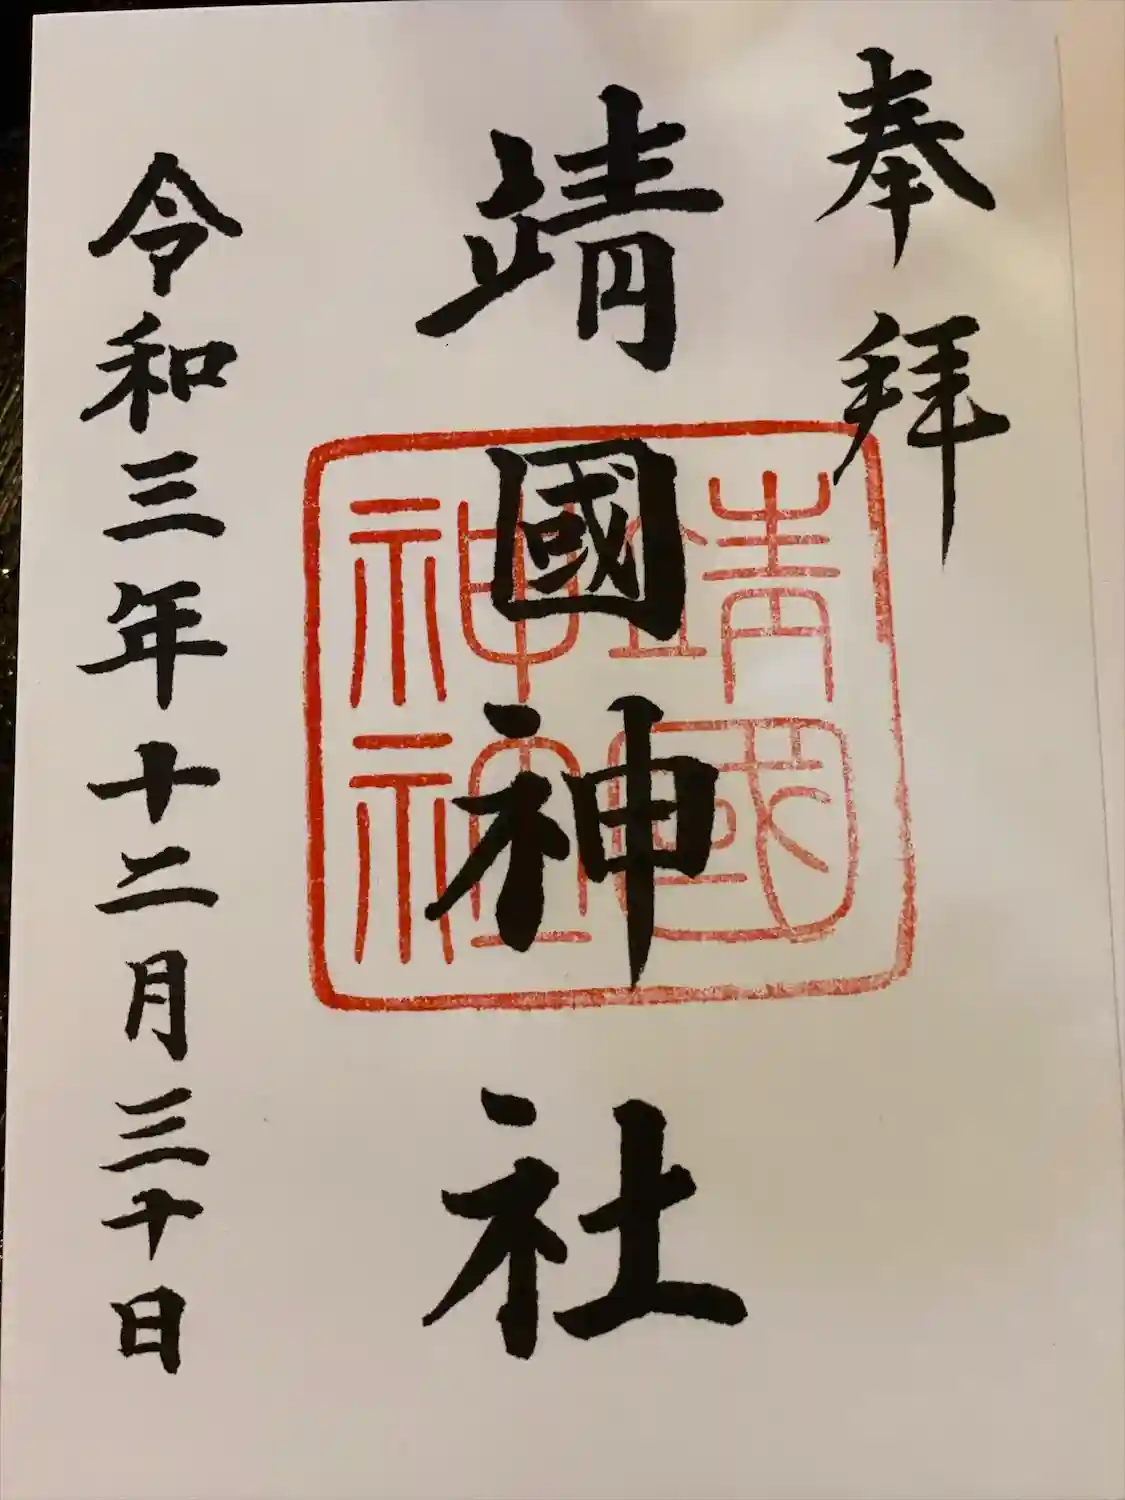 奉拜
靖國神社
靖國
神社
令和三年十二月三十日